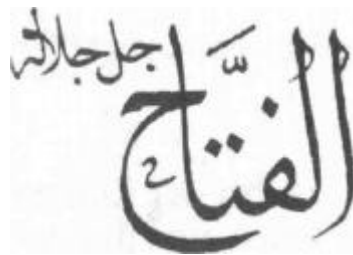 الفتّاح
جل جلاله